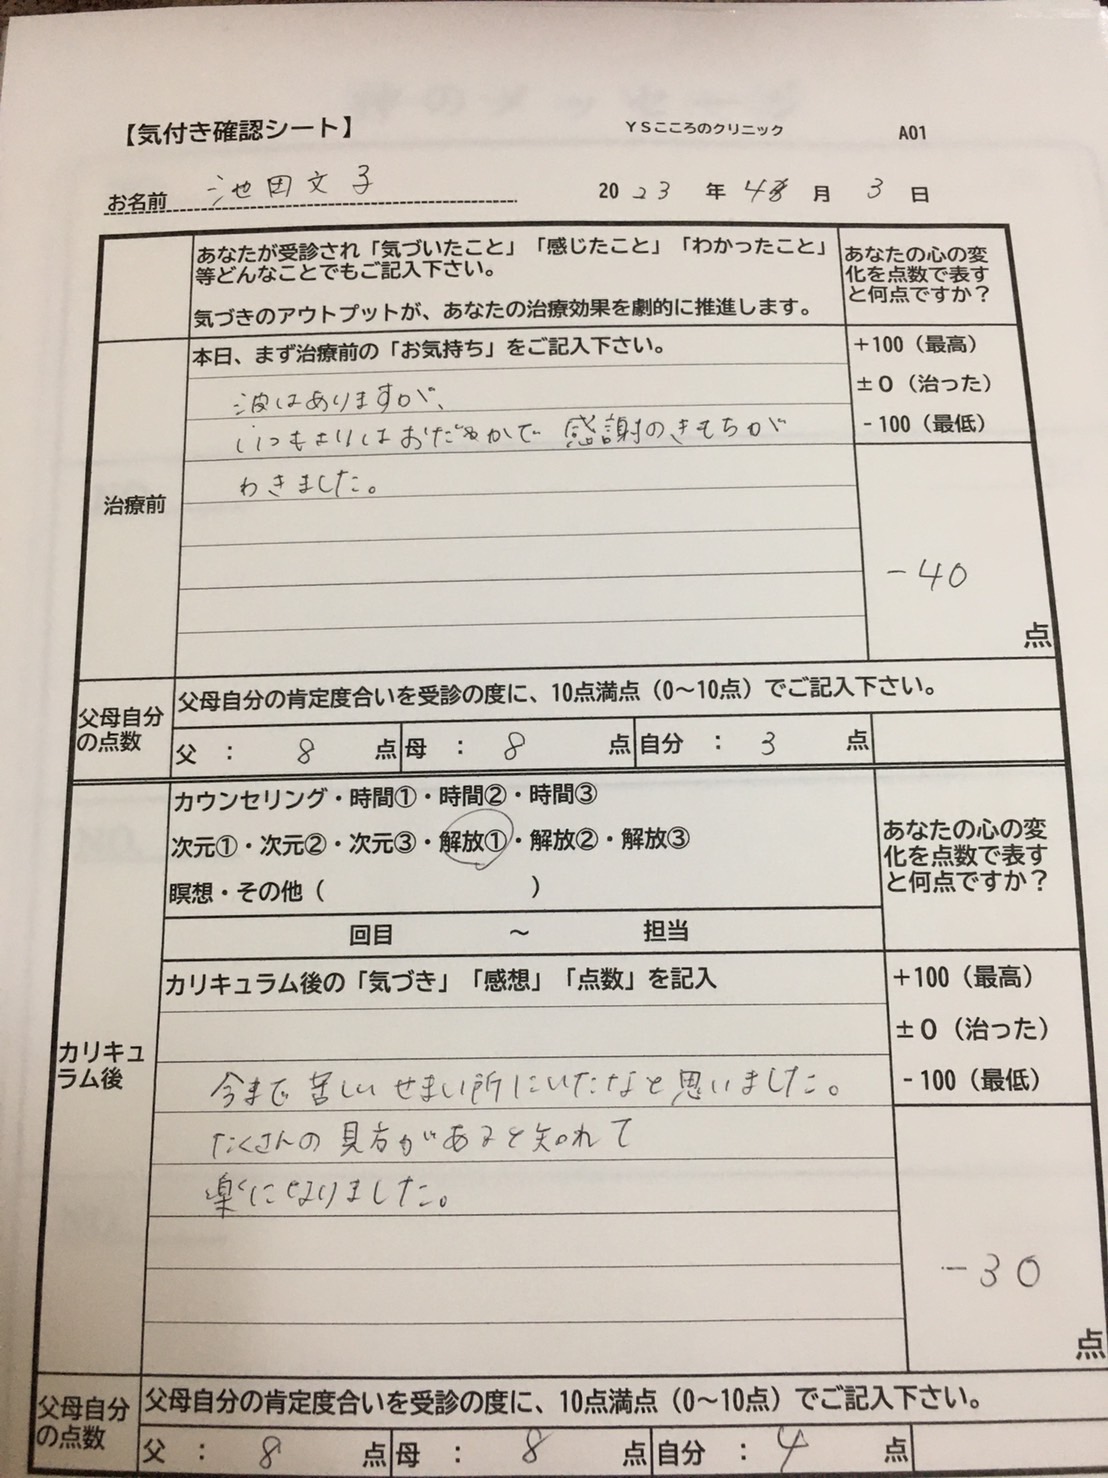 【気付き確認シート】
YSこころのクリニック
A01
お名前 池田文子
2023年4月3日
あなたが受診され「気づいたこと」「感じたこと」「わかったこと」
等どんなことでもご記入下さい。
気づきのアウトプットが、あなたの治療効果を劇的に推進します。
あなたの心の変
化を点数で表す
と何点ですか？
治療前
本日、まず治療前の「お気持ち」をご記入下さい。
波はありますが、
いつもよりはおだやかで 感謝のきもちが
わきました。
+100（最高）
±0（治った）
-100（最低）
-40
点
父母自分
の点数
父母自分の肯定度合いを受診の度に、10点満点（0～10点）でご記入下さい。
父 ： 8 点 母 ： 8 点 自分 ： 3 点
カリキュ
ラム後
カウンセリング・時間①・時間②・時間③
次元①・次元②・次元③・解放①・解放②・解放③
瞑想・その他（ ）
回目 ～ 担当
あなたの心の変
化を点数で表す
と何点ですか？
カリキュラム後の「気づき」「感想」「点数」を記入
今まで 苦しい せまい所にいたなと思いました。
たくさんの 見方があると知れて
楽になりました。
+100（最高）
±0（治った）
-100（最低）
-30
点
父母自分
の点数
父母自分の肯定度合いを受診の度に、10点満点（0～10点）でご記入下さい。
父 ： 8 点 母 ： 8 点 自分 ： 4 点